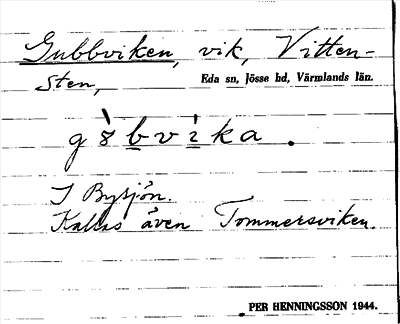 Gubbviken, vik, Vitten-
sten, Eda sn, Jösse hd, Värmlands län.
g8̀bvìka.
I Bysjön.
Kallas även Tommersviken.
PER HENNINGSSON 1944.